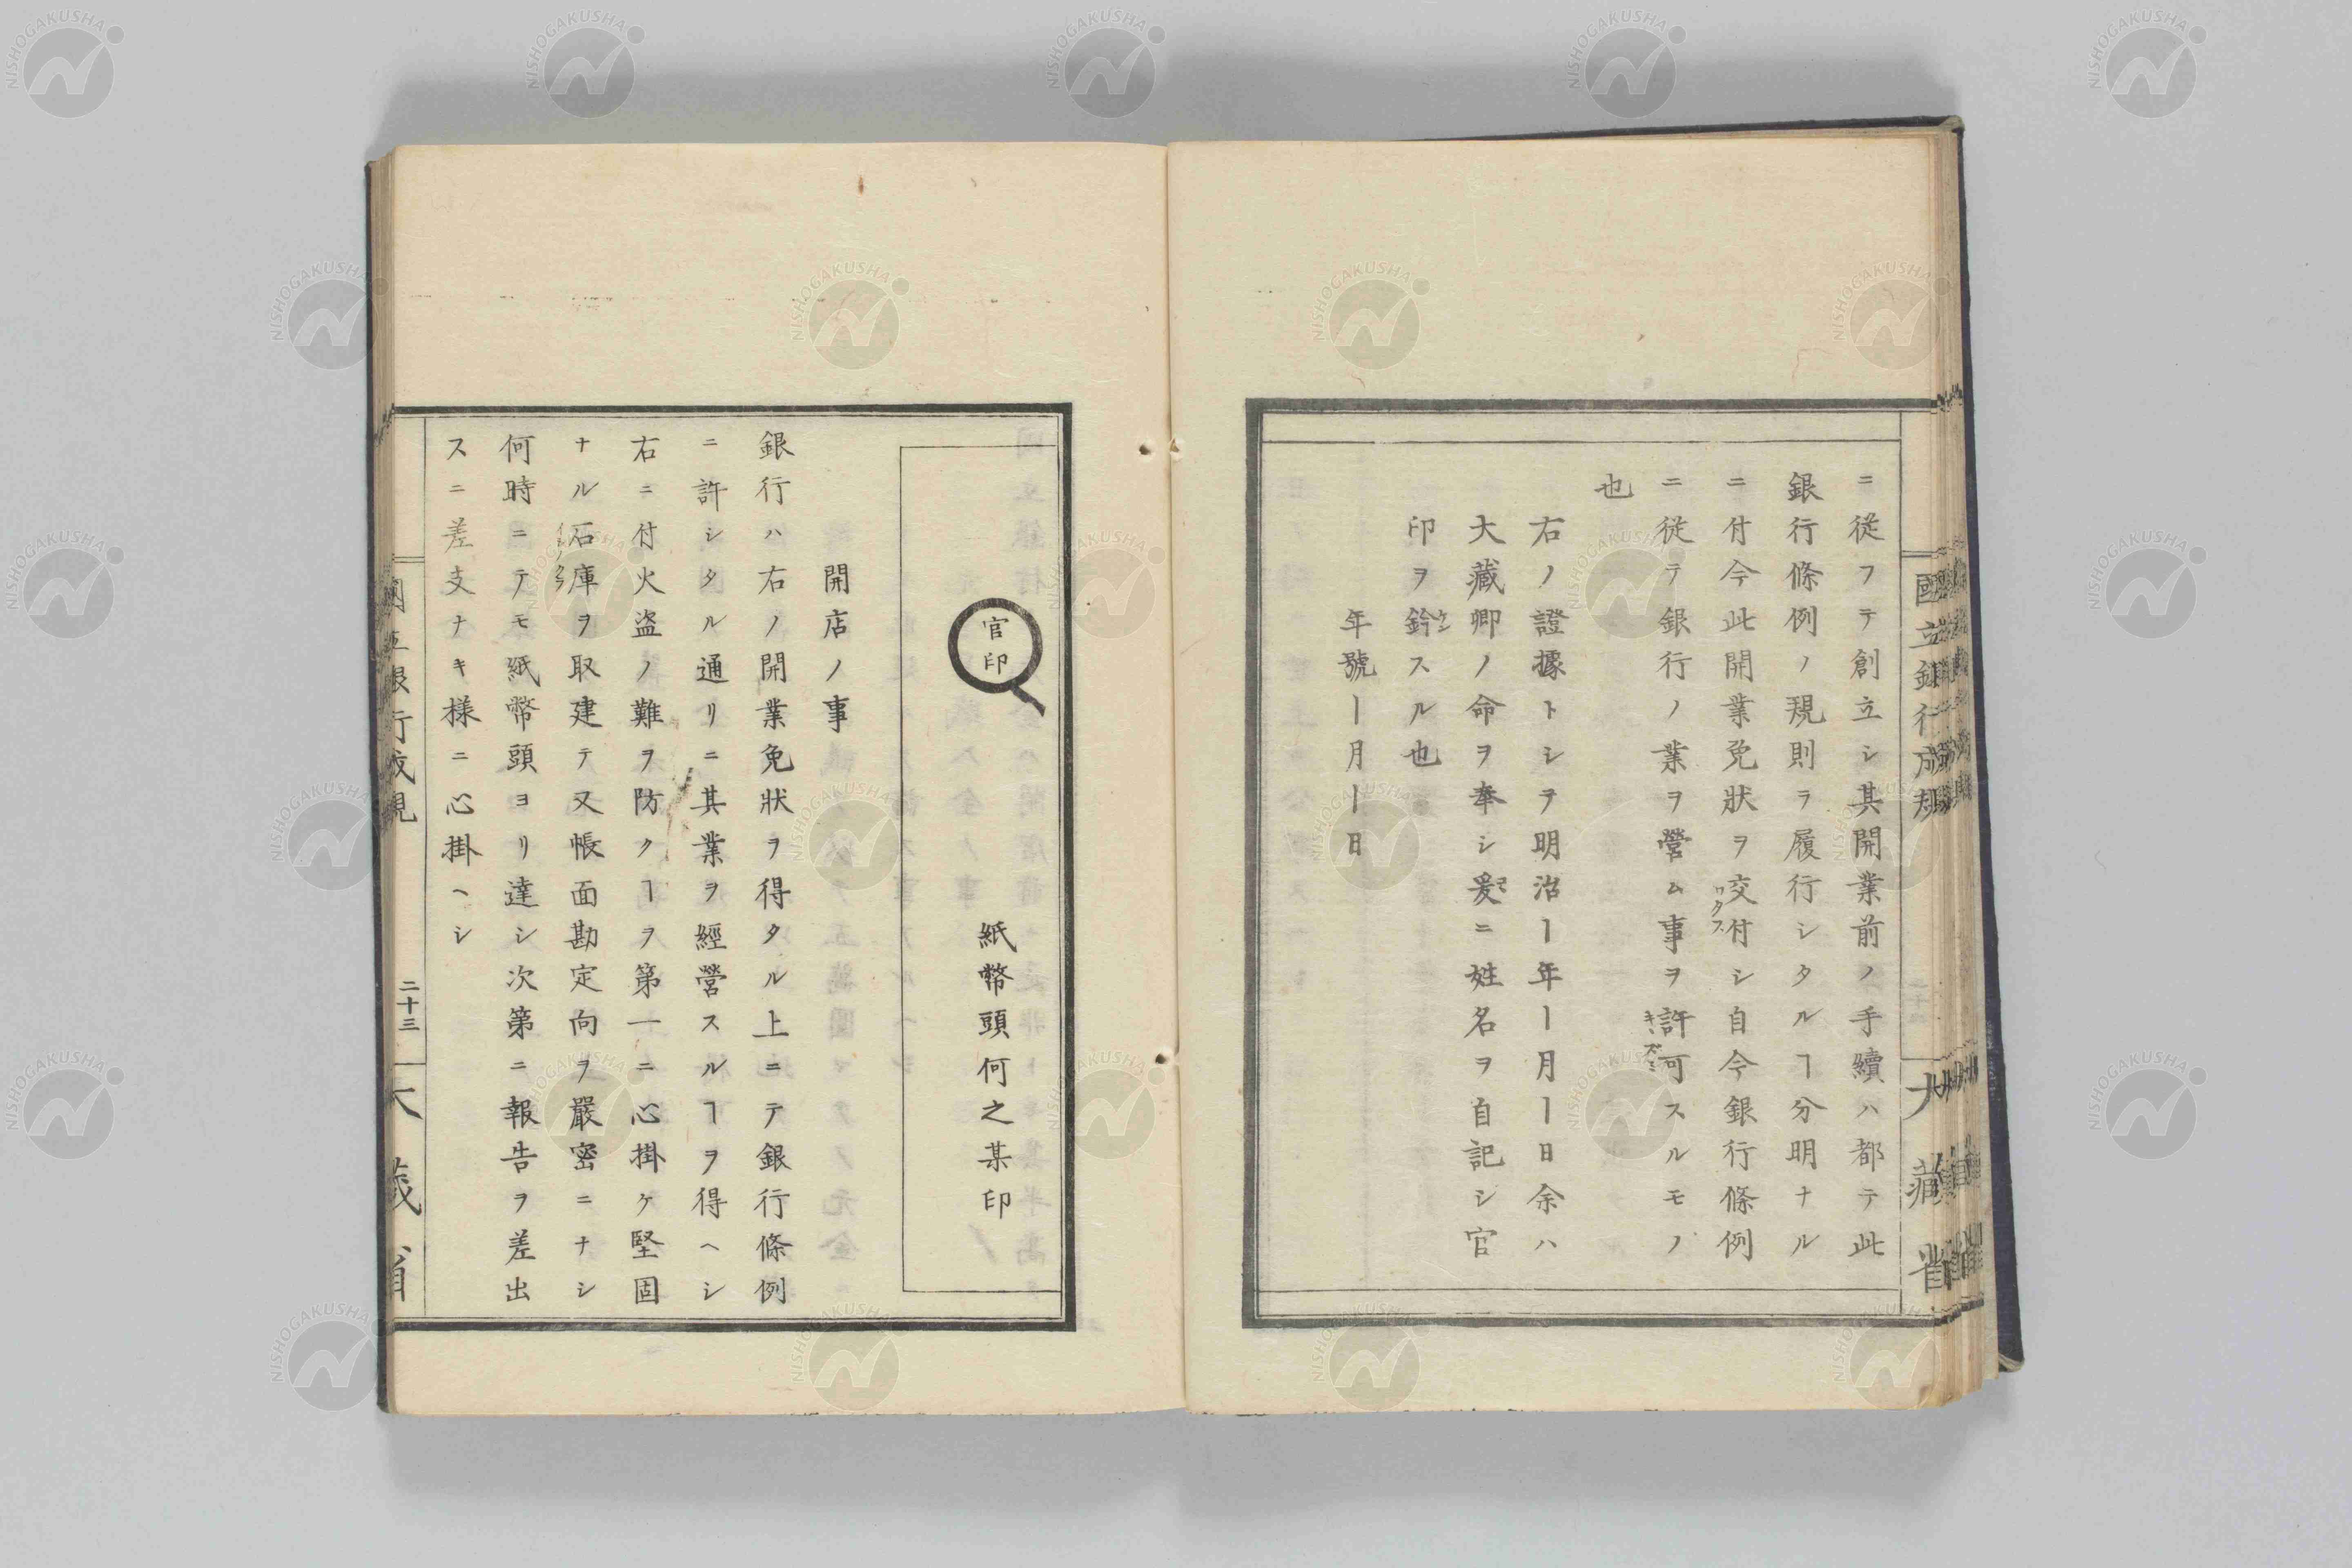 ニ從フテ創立シ其開業前ノ手續ハ都テ此
銀行條例ノ規則ヲ履行シタルヿ分明ナル
ニ付今此開業免狀ヲ交付シ自今銀行條例
ワクス
ニ從テ銀行ノ業ヲ營ム事ヲ許可スルモノ
也
右ノ證據トシテ明治ー年ー月ー日余ハ
大藏卿ノ命ヲ奉シ爰ニ姓名ヲ自記シ官
印ヲ鈐スル也
年號ー月ー日
國立銀行成規
大藏省
官印
紙幣頭何之某印
開店ノ事
銀行ハ右ノ開業免狀ヲ得タル上ニテ銀行條例
ニ許シタル通リニ其業ヲ經營スルヿヲ得ヘシ
右ニ付火盗ノ難ヲ防クヿヲ第一ニ心掛ケ堅固
ナル石庫ヲ取建テ又帳面勘定向ヲ嚴密ニナシ
何時ニテモ紙幣頭ヨリ達シ次第ニ報告ヲ差出
スニ差支ナキ樣ニ心掛ヘシ
國立銀行成規
二十三
大藏省
NISHOGAKUSHA